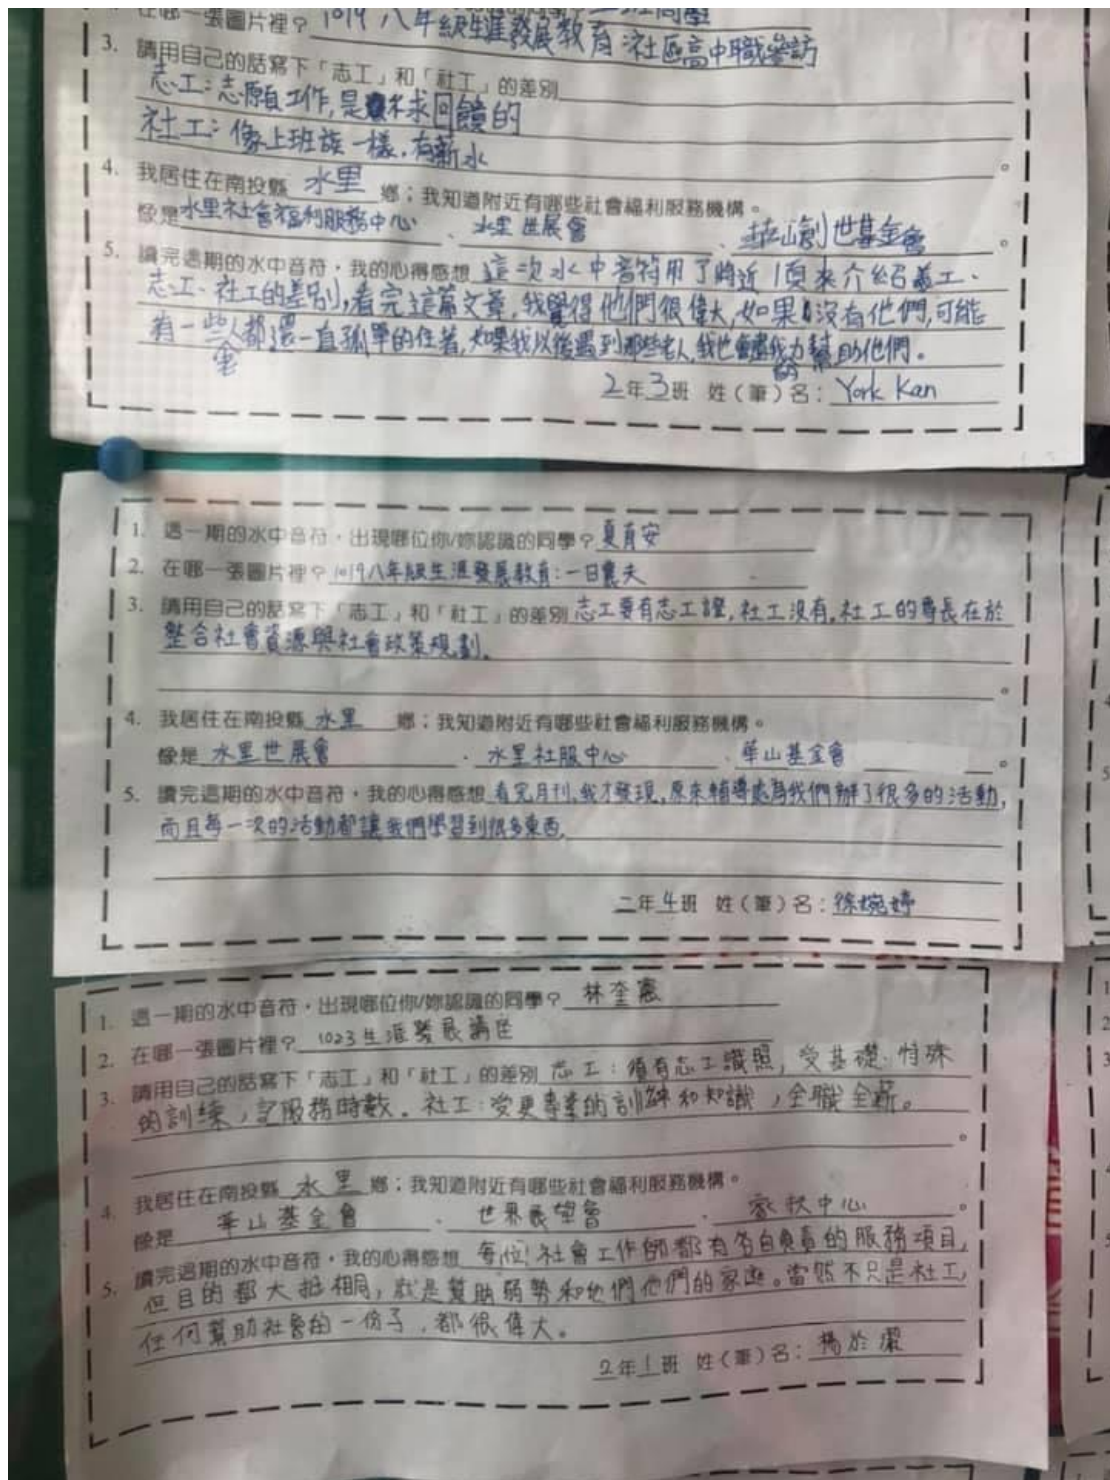 在哪一張圖片裡？1019八年級生涯發展教育:社區高中職參訪
3. 請用自己的話寫下「志工」和「社工」的差別
志工:志願工作,是不求回饋的
社工:像上班族一樣,有薪水 。
4. 我居住在南投縣 水里 鄉；我知道附近有哪些社會福利服務機構。
像是水里社會福利服務中心、水里世展會、華山創世基金會。
5. 讀完這期的水中音符，我的心得感想 這次水中音符用了將近1頁來介紹義工、
志工、社工的差別,看完這篇文章,我覺得他們很偉大,如果沒有他們,可能
有一些人都還一直孤單的住著,如果我以後遇到那些老人,我也會盡我力幫助他們。
2年3班 姓（筆）名：York Kan
1. 這一期的水中音符，出現哪位你/妳認識的同學？夏育安
2. 在哪一張圖片裡？1019八年級生涯發展教育:一日農夫
3. 請用自己的話寫下「志工」和「社工」的差別 志工要有志工證,社工沒有,社工的專長在於
整合社會資源與社會政策規劃。
。
4. 我居住在南投縣 水里 鄉；我知道附近有哪些社會福利服務機構。
像是 水里世展會、水里社服中心、華山基金會 。
5. 讀完這期的水中音符，我的心得感想 看完月刊,我才發現,原來輔導處為我們辦了很多的活動,
而且每一次的活動都讓我們學習到很多東西。
二年4班 姓（筆）名：徐婉婷
1. 這一期的水中音符，出現哪位你/妳認識的同學？ 林奎憲
2. 在哪一張圖片裡？ 1023生涯發展講座
3. 請用自己的話寫下「志工」和「社工」的差別 志工:須有志工識照,受基礎、特殊
的訓練,記服務時數。社工:受更專業的訓練和知識,全職全薪。
。
4. 我居住在南投縣 水里 鄉；我知道附近有哪些社會福利服務機構。
像是 華山基金會、世界展望會、家扶中心 。
5. 讀完這期的水中音符，我的心得感想 每位社會工作師都有各自負責的服務項目,
但目的都大抵相同,就是幫助弱勢和他們他們的家庭。當然不只是社工,
任何幫助社會的一份子,都很偉大。
2年1班 姓（筆）名：楊於潔